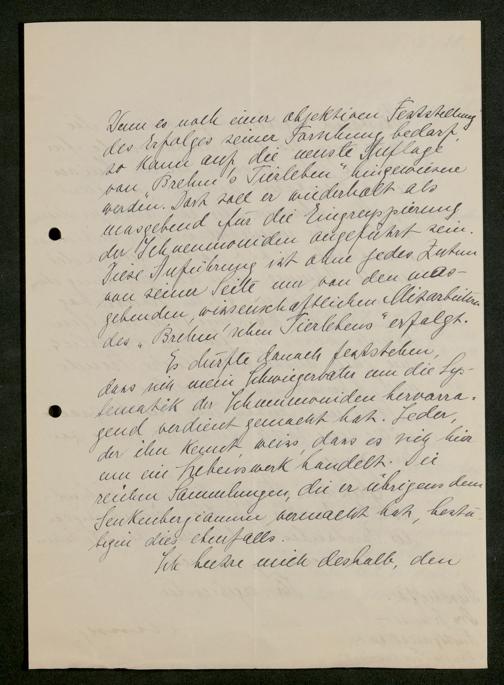 Wenn es noch einer objektiven Feststellung
des Erfolges seiner Forschung bedarf,
so kann auf die neuste Auflage
von "Brehm's Tierleben" hingewiesen
werden. Dort soll er wiederholt als
massgebend für die Eingruppierung
der Ichneumoniden angeführt sein.
Diese Anführung ist ohne jedes Zutun
von seiner Seite nur von den mass-
gebenden, wissenschaftlichen Mitarbeitern
des "Brehm'schen Tierlebens" erfolgt.
Es dürfte danach feststehen,
dass sich mein Schwiegervater um die Sy-
stematik der Ichneumoniden hervorra-
gend verdient gemacht hat. Jeder,
der ihn kennt, weiss, dass es sich hier
um ein Lebenswerk handelt. Die
reichen Sammlungen, die er übrigens dem
Senkenbergianum vermacht hat, bestä-
tigen dies ebenfalls.
Ich beehre mich deshalb, den